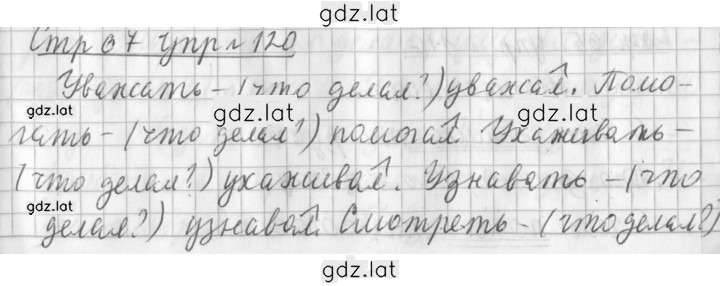 gdz.lat
Стр 67 упр. 120
Уважать - (что делал?) уважал. Помо-
gdz.lat gdz.lat gdz.lat
гать - (что делал?) помогал. Ухаживать -
(что делал?) ухаживал. Узнавать - (что
gdz.lat gdz.lat gdz.lat
делал?) узнавал. Смотреть - (что делал?)
gdz.lat